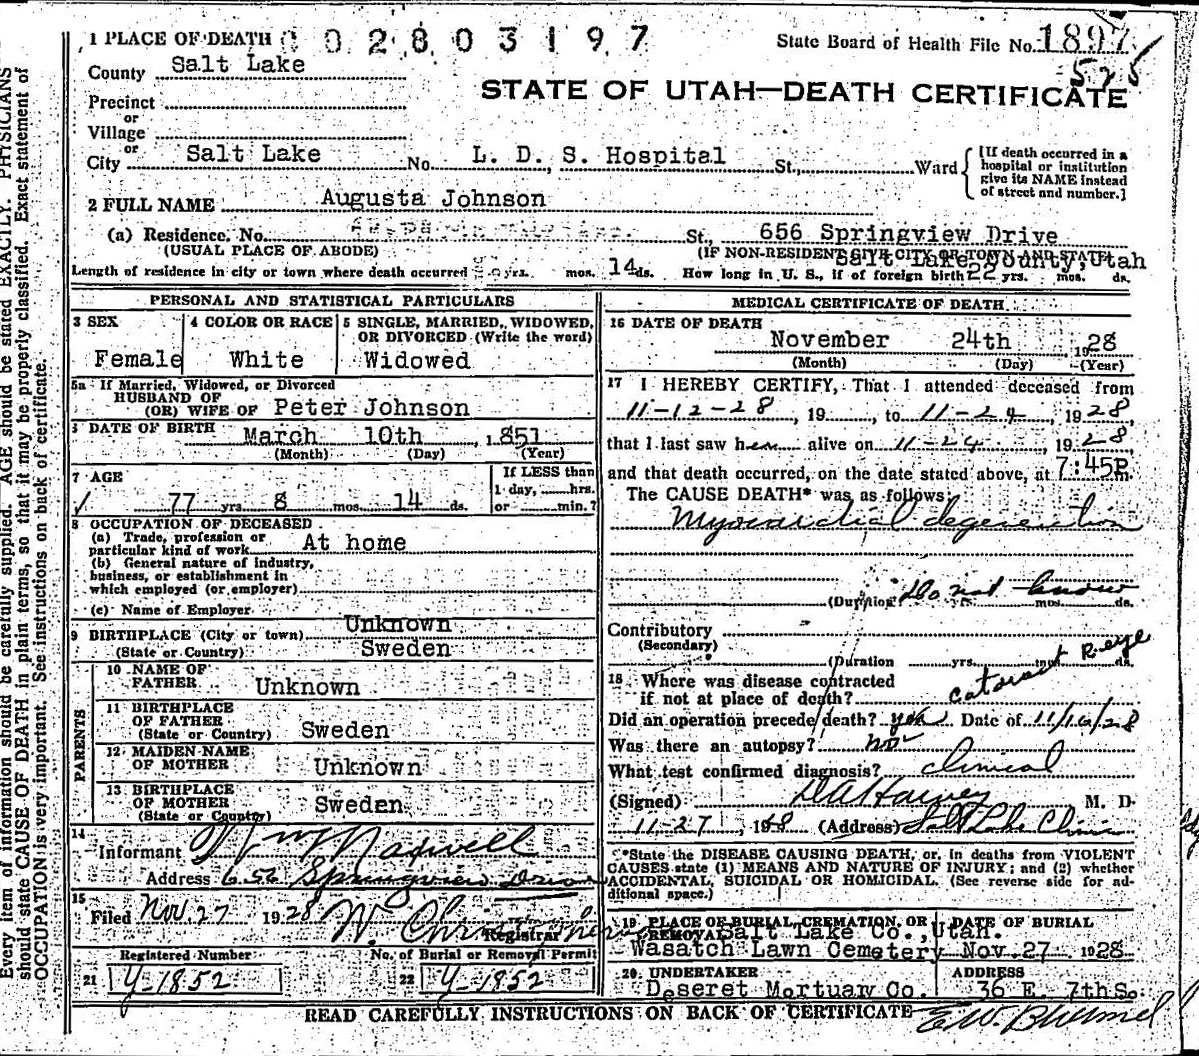 1 PLACE OF DEATH 0 0 2 8 0 3 1 9 7 State Board of Health File No. 1897
County Salt Lake 525
STATE OF UTAH—DEATH CERTIFICATE
Precinct
or
Village
or
City Salt Lake No. L. D. S. Hospital St., Ward {[If death occurred in a hospital or institution give its NAME instead of street and number.]
2 FULL NAME Augusta Johnson
(a) Residence. No. St., 656 Springview Drive
(USUAL PLACE OF ABODE) (IF NON-RESIDENT GIVE CITY OR TOWN AND STATE)
Salt Lake County, Utah
Length of residence in city or town where death occurred yrs. mos. 14 ds. How long in U. S., if of foreign birth 22 yrs. mos. ds.
PERSONAL AND STATISTICAL PARTICULARS
3 SEX 4 COLOR OR RACE 5 SINGLE, MARRIED, WIDOWED, OR DIVORCED (Write the word)
Female White Widowed
5a If Married, Widowed, or Divorced
HUSBAND OF
(OR) WIFE OF Peter Johnson
DATE OF BIRTH March 10th, 1851
(Month) (Day) (Year)
7 AGE If LESS than
77 yrs 8 mos. 14 ds. 1 day, hrs.
or min.?
8 OCCUPATION OF DECEASED
(a) Trade, profession or
particular kind of work At home
(b) General nature of industry,
business, or establishment in
which employed (or employer)
(c) Name of Employer
Unknown
9 BIRTHPLACE (City or town)
(State or Country) Sweden
PARENTS
10 NAME OF
FATHER Unknown
11 BIRTHPLACE
OF FATHER
(State or Country) Sweden
12 MAIDEN NAME
OF MOTHER Unknown
13 BIRTHPLACE
OF MOTHER Sweden
(State or Country)
14
Informant Wm Maxwell
Address 656 Springview Drive
15
Filed Nov. 27 1928
Registrar
Registered Number No. of Burial or Removal Permit
21 Y-1852 22 Y-1852
MEDICAL CERTIFICATE OF DEATH
16 DATE OF DEATH
November 24th 1928
(Month) (Day) (Year)
17 I HEREBY CERTIFY, That I attended deceased from
11-12-28, 19 , to 11-24, 1928,
that I last saw her alive on 11-24, 1928,
and that death occurred, on the date stated above, at 7:45P m.
The CAUSE DEATH* was as follows:
Myocardial degeneration
(Duration) Do not know yrs. mos. ds.
Contributory
(Secondary)
(Duration yrs. mos. ds.
18 Where was disease contracted
if not at place of death?
cataract R. eye
Did an operation precede death? yes Date of 11/16/28
Was there an autopsy? no
What test confirmed diagnosis? clinical
(Signed) M. D.
11-27, 1928 (Address) Salt Lake Clinic
*State the DISEASE CAUSING DEATH, or, in deaths from VIOLENT
CAUSES state (1) MEANS AND NATURE OF INJURY; and (2) whether
ACCIDENTAL, SUICIDAL OR HOMICIDAL. (See reverse side for ad-
ditional space.)
19 PLACE OF BURIAL, CREMATION, OR REMOVAL DATE OF BURIAL
Salt Lake Co., Utah.
Wasatch Lawn Cemetery Nov. 27 1928
20 UNDERTAKER ADDRESS
Deseret Mortuary Co. 36 E. 7th So.
READ CAREFULLY INSTRUCTIONS ON BACK OF CERTIFICATE
Every item of information should be carefully supplied. AGE should be stated EXACTLY. PHYSICIANS
should state CAUSE OF DEATH in plain terms, so that it may be properly classified. Exact statement of
OCCUPATION is very important. See instructions on back of certificate.